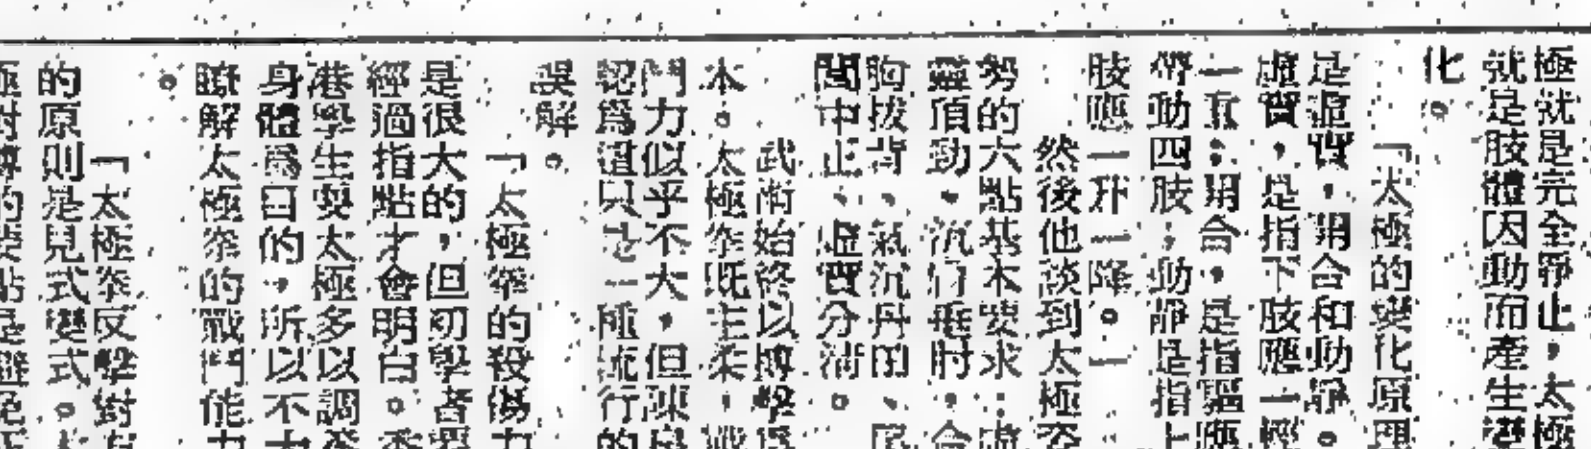 極就是完全靜止，太極
就是肢體因動而產生
化。
「太極的變化原理
是虛實，開合和動靜。
虛實，是指下肢應一
一重；開合，是指軀
帶動四肢；動靜是指上
肢應一升一降。」
然後他談到太極姿
勢的六點基本要求：
靈頂勁、沉肩垂肘、含
胸拔背、氣沉丹田、尾
閭中正、虛實分清。
武術始終以搏擊爲
本。太極拳既主柔，戰
鬥力似乎不大，但陳
認爲這只是一種流行的
誤解。
「太極拳的殺傷力
是很大的，但初學者
經過指點才會明白。
港學生要太極多以調
身體爲目的，所以不
瞭解太極拳的戰鬥能力
。
「太極拳反擊對
的原則是見式變式。